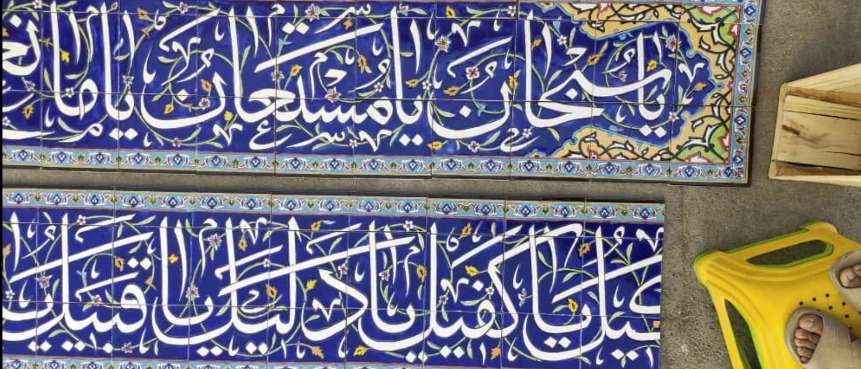 یا سبحان یا مستعان یا مانع
کیل یا کفیل یا دلیل یا قبیل